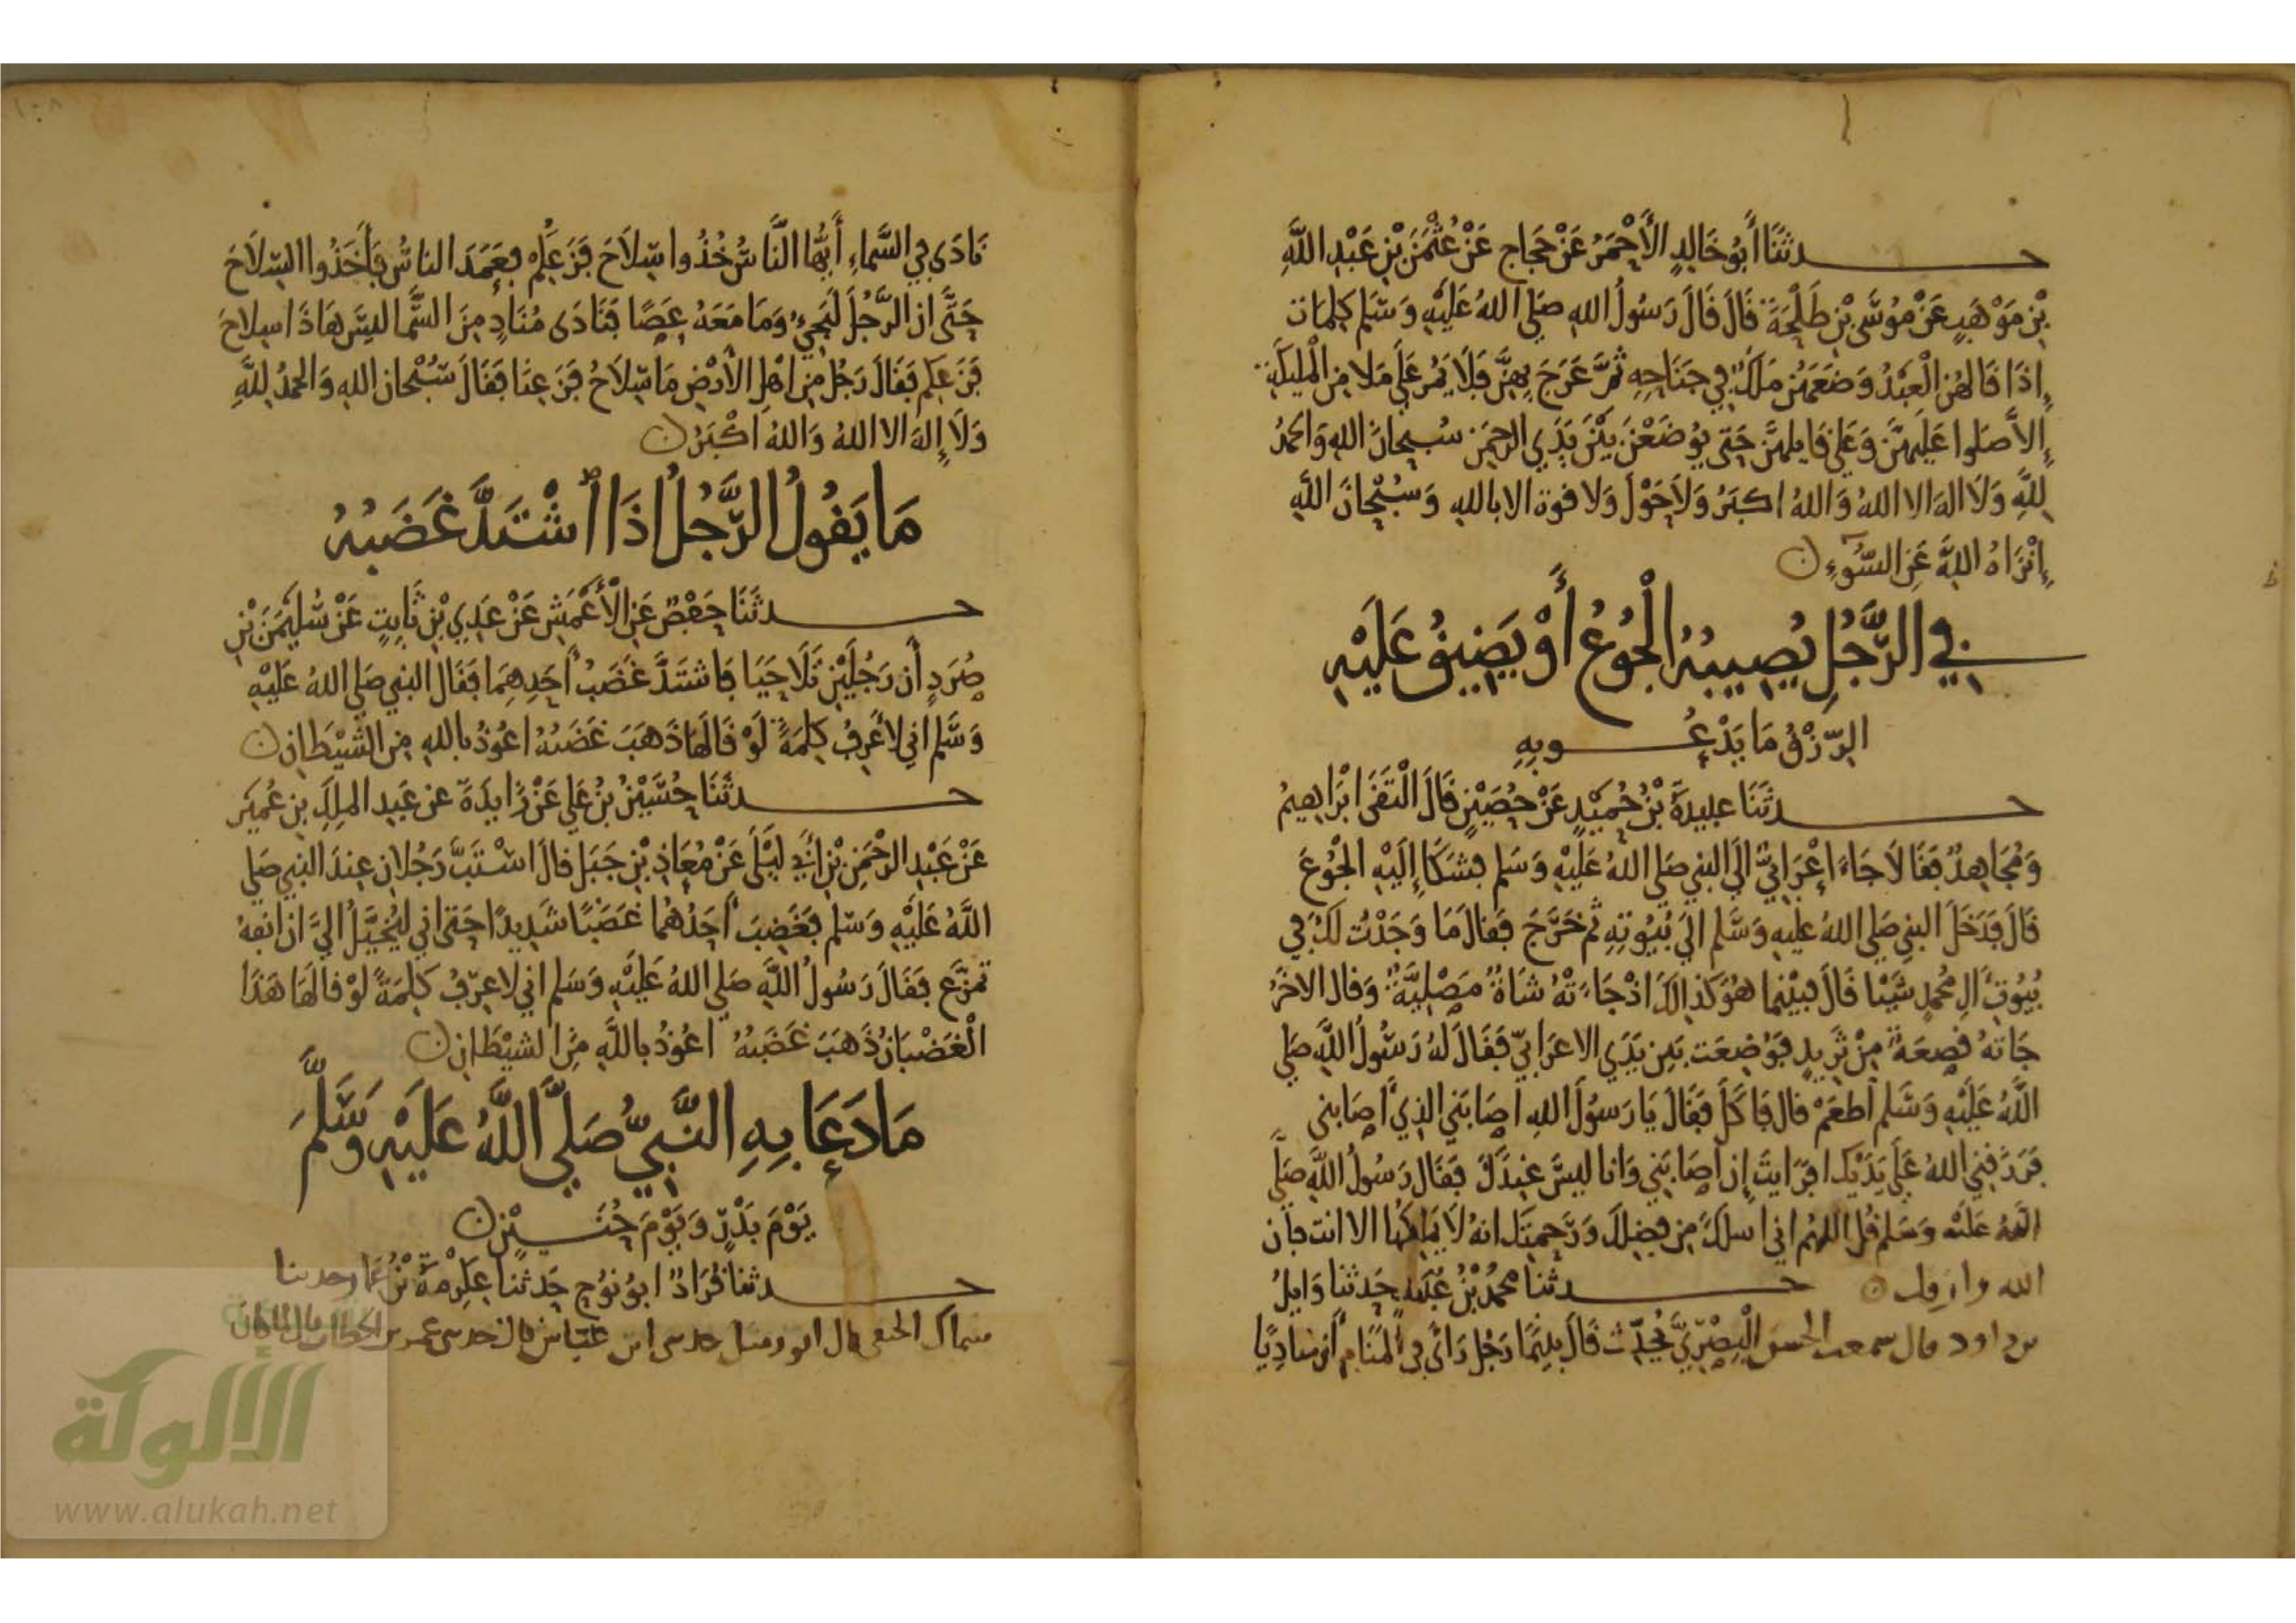 حدثنا أَبُو خَالِدٍ الأَحْمَرُ عَنْ حَجاج عَنْ عُثْمَنَ بْنِ عَبْدِ اللَّهِ
بْنِ مَوْهَبٍ عَنْ مُوسَى بْنِ طَلْحَةَ قَالَ قَالَ رَسُولُ اللهِ صَلى اللهُ عَلَيْهِ وَسَلم كلِمَات
إِذَا قَالهُن الْعَبْدُ وَضَعَهُن مَلَكٌ فِي جَنَاحِهِ ثُمَّ عَرَجَ بِهِنَّ فَلَا يَمُر عَلَى مَلا مِن الْمَلَيكَةِ
إِلاَّ صَلوا عَلَيهِنَّ وَعَلى قَايِلهنَّ حَتى يُوضَعْنَ بَيْنَ يَدَيِ الرحمَن سُبحانَ اللهِ وَالحمدُ
لِلَّهِ وَلَا اله الا اللهُ وَاللهُ اكبَرُ وَلَا حَوْلَ وَلا قوة الا بالله وَسُبْحَانَ اللَّهِ
إِنْزَاهُ اللَّهِ عَنِ السُّوءِ ن
فِي الرَّجُلِ يُصِيبُهُ الْجُوعُ أَوْ يَضِيقُ عَلَيْهِ
الرِّزْقُ مَا يَدْعُو بِهِ
حدثَنَا عبيدةُ بْنُ حُمَيْدٍ عَنْ حُصَيْنٍ قَالَ الْتَقَى ابْرَاهِيمُ
وَمُجَاهِدٌ فَقَالَا جَاءَ اعْرَابيٌّ الَى النبي صَلى اللهُ عَلَيْهِ وَسَلم فشَكَا إِلَيْهِ الْجُوعَ
قَالَ فَدَخَلَ النبي صَلى اللهُ عليهِ وَسَلَّم الَى بُيُوتِهِ ثم خَرَجَ فَقالَ مَا وَجَدْتُ لَكَ فِي
بُيُوتِ الِ مُحَمدٍ شَيْئا قَالَ فبَيْنَما هُوَ كَذالِكَ اذْ جَاءَتْهُ شَاةٌ مَصْلِيَّةٌ وَقال الاخَرُ
جَاتهُ قصعَةٌ مِنْ ثَرِيدٍ فَوُضِعَت بَين يَدَيِ الاعرَابيّ فَقَالَ لهُ رَسُولُ اللَّهِ صَلى
اللَّهُ عَلَيْهِ وَسَلم اطْعَمْ قال فَاكَلَ فَقَالَ يَا رَسُولَ اللهِ اصَابَنِي الذِي اصَابني
فَرَزَقَنِي اللهُ عَلَى يَدَيْكَ افرَايتَ إِن اصَابَنِي وَانا ليسَ عِنْدَكَ فَقَالَ رَسُولُ اللَّهِ صَلَّى
اللهُ عَلَيْهِ وَسَلم قُل اللهُم اني اسلكَ مِن فضلِكَ وَرَحمتِكَ انهُ لَا يَملِكُهَا الا انت فان
الله رازقك ن حدثنا محمدُ بْنُ عُبَيدٍ حَدثنا وَايِلُ
بن داود قال سمعت الحسن الْبِصْرِيَّ يُحَدِّث قَالَ بيْنَمَا رَجُل رَاى فِي المَنَامِ أَن مُنادِيًا
١٠٨
نَادَى فِي السَّمَاءِ أَيُّهَا النَّاسُ خُذُوا سِلَاحَ فَزَعِكُم فعَمَدَ الناسُ فَأَخَذُوا السِّلَاحَ
حَتَّى ان الرَّجُلَ لَيجيءُ وَمَا مَعَهُ عَصًا فَنَادَى مُنَادٍ مِنَ السَّمَا ليسَ هَاذَا سِلَاحَ
فَزَعِكم فَقَالَ رَجُل مِن اهْلِ الأَرْضِ مَا سِلَاحُ فَزَعِنَا فَقَالَ سُبْحان اللهِ وَالحمدُ لِلَّهِ
وَلَا إِلهَ الا اللهُ وَاللهُ اكْبَرُ ن
مَا يَقُولُ الرَّجُلُ اذَا اشْتَدَّ غَضَبُهُ
حدثَنَا حَفْصٌ عَنِ الأَعْمَشِ عَنْ عَدِي بْنِ ثَابِتٍ عَنْ سُلَيْمَنَ بْنِ
صُرَدٍ أَن رَجُلَيْنِ تَلَاحَيَا فَاشتَدَّ غَضَبُ احَدِهِمَا فَقَالَ النبي صَلى اللهُ عَلَيْهِ
وَسَلَّم اني لَأَعرِفُ كلِمَةً لَوْ قَالَهَا ذَهَبَ غَضَبُهُ اعُوذُ باللهِ مِن الشَّيْطَانِ ن
حدثَنَا حُسَيْنُ بْنُ عَلي عَنْ زَايدَةَ عن عَبدِ المَلِكِ بنِ عُمَيرٍ
عَنْ عَبْدِ الرَّحْمَنِ بْنِ أَبِي لَيْلَى عَنْ مُعَاذِ بْنِ جَبَل قالَ اسْتَبَّ رَجُلانِ عِندَ النبي صَلى
اللَّهُ عَلَيْهِ وَسَلم فَغَضِبَ احَدُهُمَا غَضَبًا شَدِيدًا حَتى اني لَيُخَيَّلُ الَيَّ ان انفهُ
تمزَّع فَقَالَ رَسُولُ اللَّهِ صَلى اللهُ عَلَيْهِ وَسَلم اني لاعرِفُ كلِمَةً لوْ قالَهَا هَذَا
الْغَضْبَانُ ذَهَبَ غَضَبُهُ اعُوذُ باللَّهِ مِنَ الشيْطَانِ ن
مَا دَعَا بِهِ النَّبِيُّ صَلَّى اللَّهُ عَلَيْهِ وَسَلَّمَ
يَوْمَ بَدْرٍ وَيَوْمَ حُنَيْنٍ ن
حدثنا قُرَادٌ ابُو نُوح حَدثنا عِكْرمةُ بْنُ عَمار حدثنا
سماك الحنفي قال ابو زميل حدثني ابن عَبَّاس قال حدثني عمر بن الخطاب قال لما كان
الألوكة
www.alukah.net